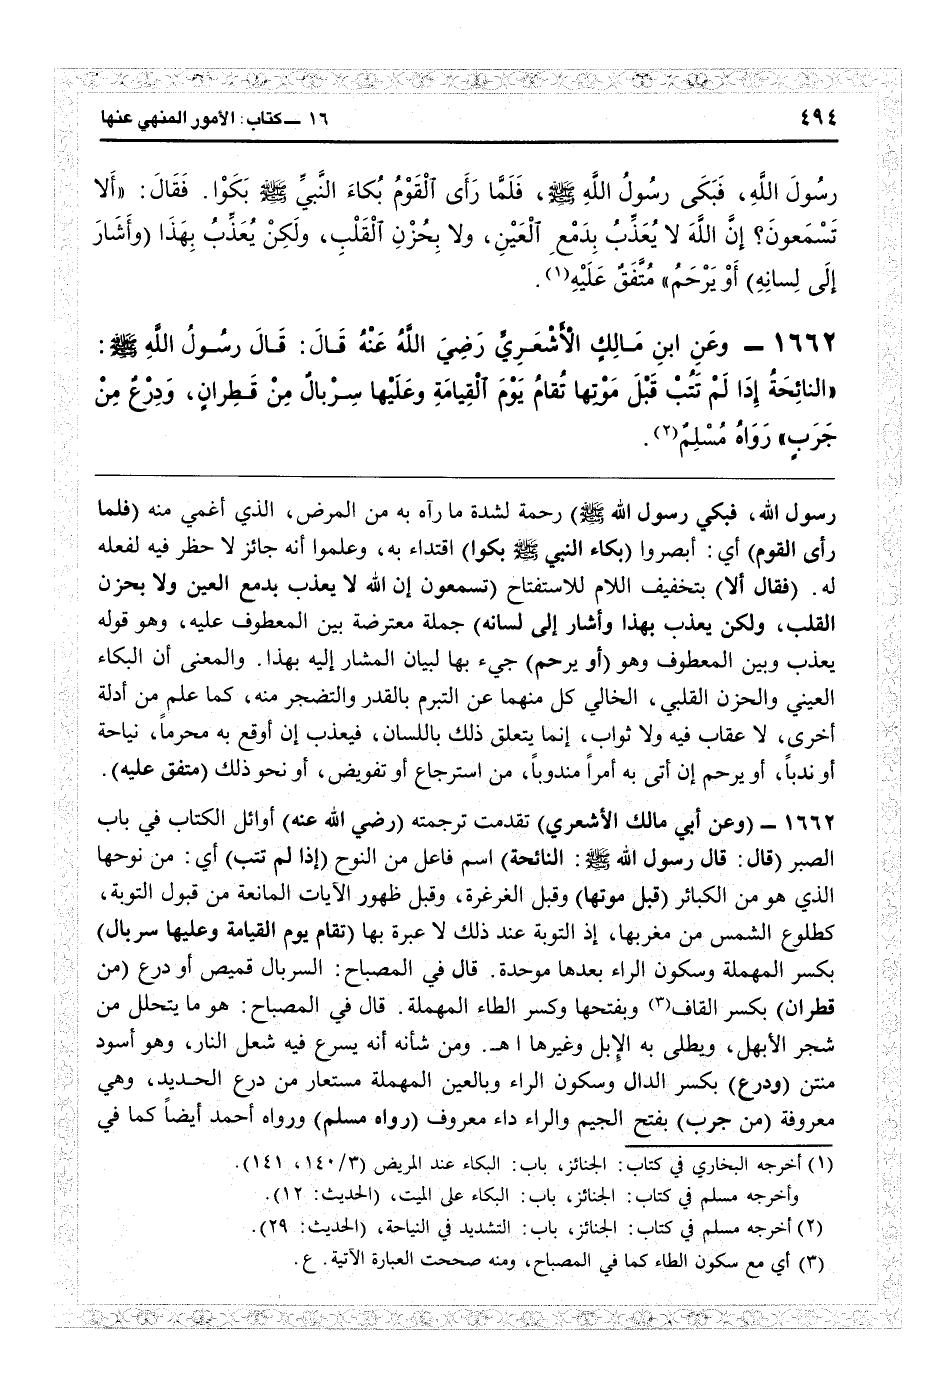 ٤٩٤
١٦ ــ كتاب: الأمور المنهي عنها
رسُولَ اللَّهِ، فَبَكى رسُولُ اللَّهِ ﷺ، فَلَمَّا رَأَى ٱلْقَوْمُ بُكاءَ النَّبيِّ ﷺ بَكَوْا. فَقَالَ: «أَلا
تَسْمَعونَ؟ إنَّ اللَّهَ لا يُعَذِّبُ بِدَمْعِ ٱلْعَيْنِ، ولا بِحُزْنِ ٱلْقَلْبِ، ولَكِنْ يُعَذِّبُ بِهَذَا (وأَشَارَ
إلَى لِسانِهِ) أَوْ يَرْحَمُ» مُتَّفَقٌ عَلَيْهِ(١).
١٦٦٢ ــ وعَنِ ابنِ مَـالِكٍ الأَشْعَرِيِّ رَضِيَ اللَّهُ عَنْهُ قَالَ: قَـالَ رسُـولُ اللَّهِ ﷺ:
«النائِحَةُ إذَا لَمْ تَتُبْ قَبْلَ مَوْتِها تُقامُ يَوْمَ ٱلْقِيامَةِ وعَلَيْها سِـرْبالٌ مِنْ قَـطِرانٍ، وَدِرْعٌ مِنْ
جَرَبٍ» رَوَاهُ مُسْلِمٌ(٢).
رسول الله، فبكي رسول الله ﷺ) رحمة لشدة ما رآه به من المرض، الذي أغمي منه (فلما
رأى القوم) أي: أبصروا (بكاء النبي ﷺ بكوا) اقتداء به، وعلموا أنه جائز لا حظر فيه لفعله
له. (فقال ألا) بتخفيف اللام للاستفتاح (تسمعون إن الله لا يعذب بدمع العين ولا بحزن
القلب، ولكن يعذب بهذا وأشار إلى لسانه) جملة معترضة بين المعطوف عليه، وهو قوله
يعذب وبين المعطوف وهو (أو يرحم) جيء بها لبيان المشار إليه بهذا. والمعنى أن البكاء
العيني والحزن القلبي، الخالي كل منهما عن التبرم بالقدر والتضجر منه، كما علم من أدلة
أخرى، لا عقاب فيه ولا ثواب، إنما يتعلق ذلك باللسان، فيعذب إن أوقع به محرماً، نياحة
أو ندباً، أو يرحم إن أتى به أمراً مندوباً، من استرجاع أو تفويض، أو نحو ذلك (متفق عليه).
١٦٦٢ ــ (وعن أبي مالك الأشعري) تقدمت ترجمته (رضي الله عنه) أوائل الكتاب في باب
الصبر (قال: قال رسول الله ﷺ: النائحة) اسم فاعل من النوح (إذا لم تتب) أي: من نوحها
الذي هو من الكبائر (قبل موتها) وقبل الغرغرة، وقبل ظهور الآيات المانعة من قبول التوبة،
كطلوع الشمس من مغربها، إذ التوبة عند ذلك لا عبرة بها (تقام يوم القيامة وعليها سربال)
بكسر المهملة وسكون الراء بعدها موحدة. قال في المصباح: السربال قميص أو درع (من
قطران) بكسر القاف(٣) وبفتحها وكسر الطاء المهملة. قال في المصباح: هو ما يتحلل من
شجر الأبهل، ويطلى به الإبل وغيرها اهـ. ومن شأنه أنه يسرع فيه شعل النار، وهو أسود
منتن (ودرع) بكسر الدال وسكون الراء وبالعين المهملة مستعار من درع الحـديد، وهي
معروفة (من جرب) بفتح الجيم والراء داء معروف (رواه مسلم) ورواه أحمد أيضاً كما في
(١) أخرجه البخاري في كتاب: الجنائز، باب: البكاء عند المريض (١٤٠/٣، ١٤١).
وأخرجه مسلم في كتاب: الجنائز، باب: البكاء على الميت، (الحديث: ١٢).
(٢) أخرجه مسلم في كتاب: الجنائز، باب: التشديد في النياحة، (الحديث: ٢٩).
(٣) أي مع سكون الطاء كما في المصباح، ومنه صححت العبارة الآتية. ع.